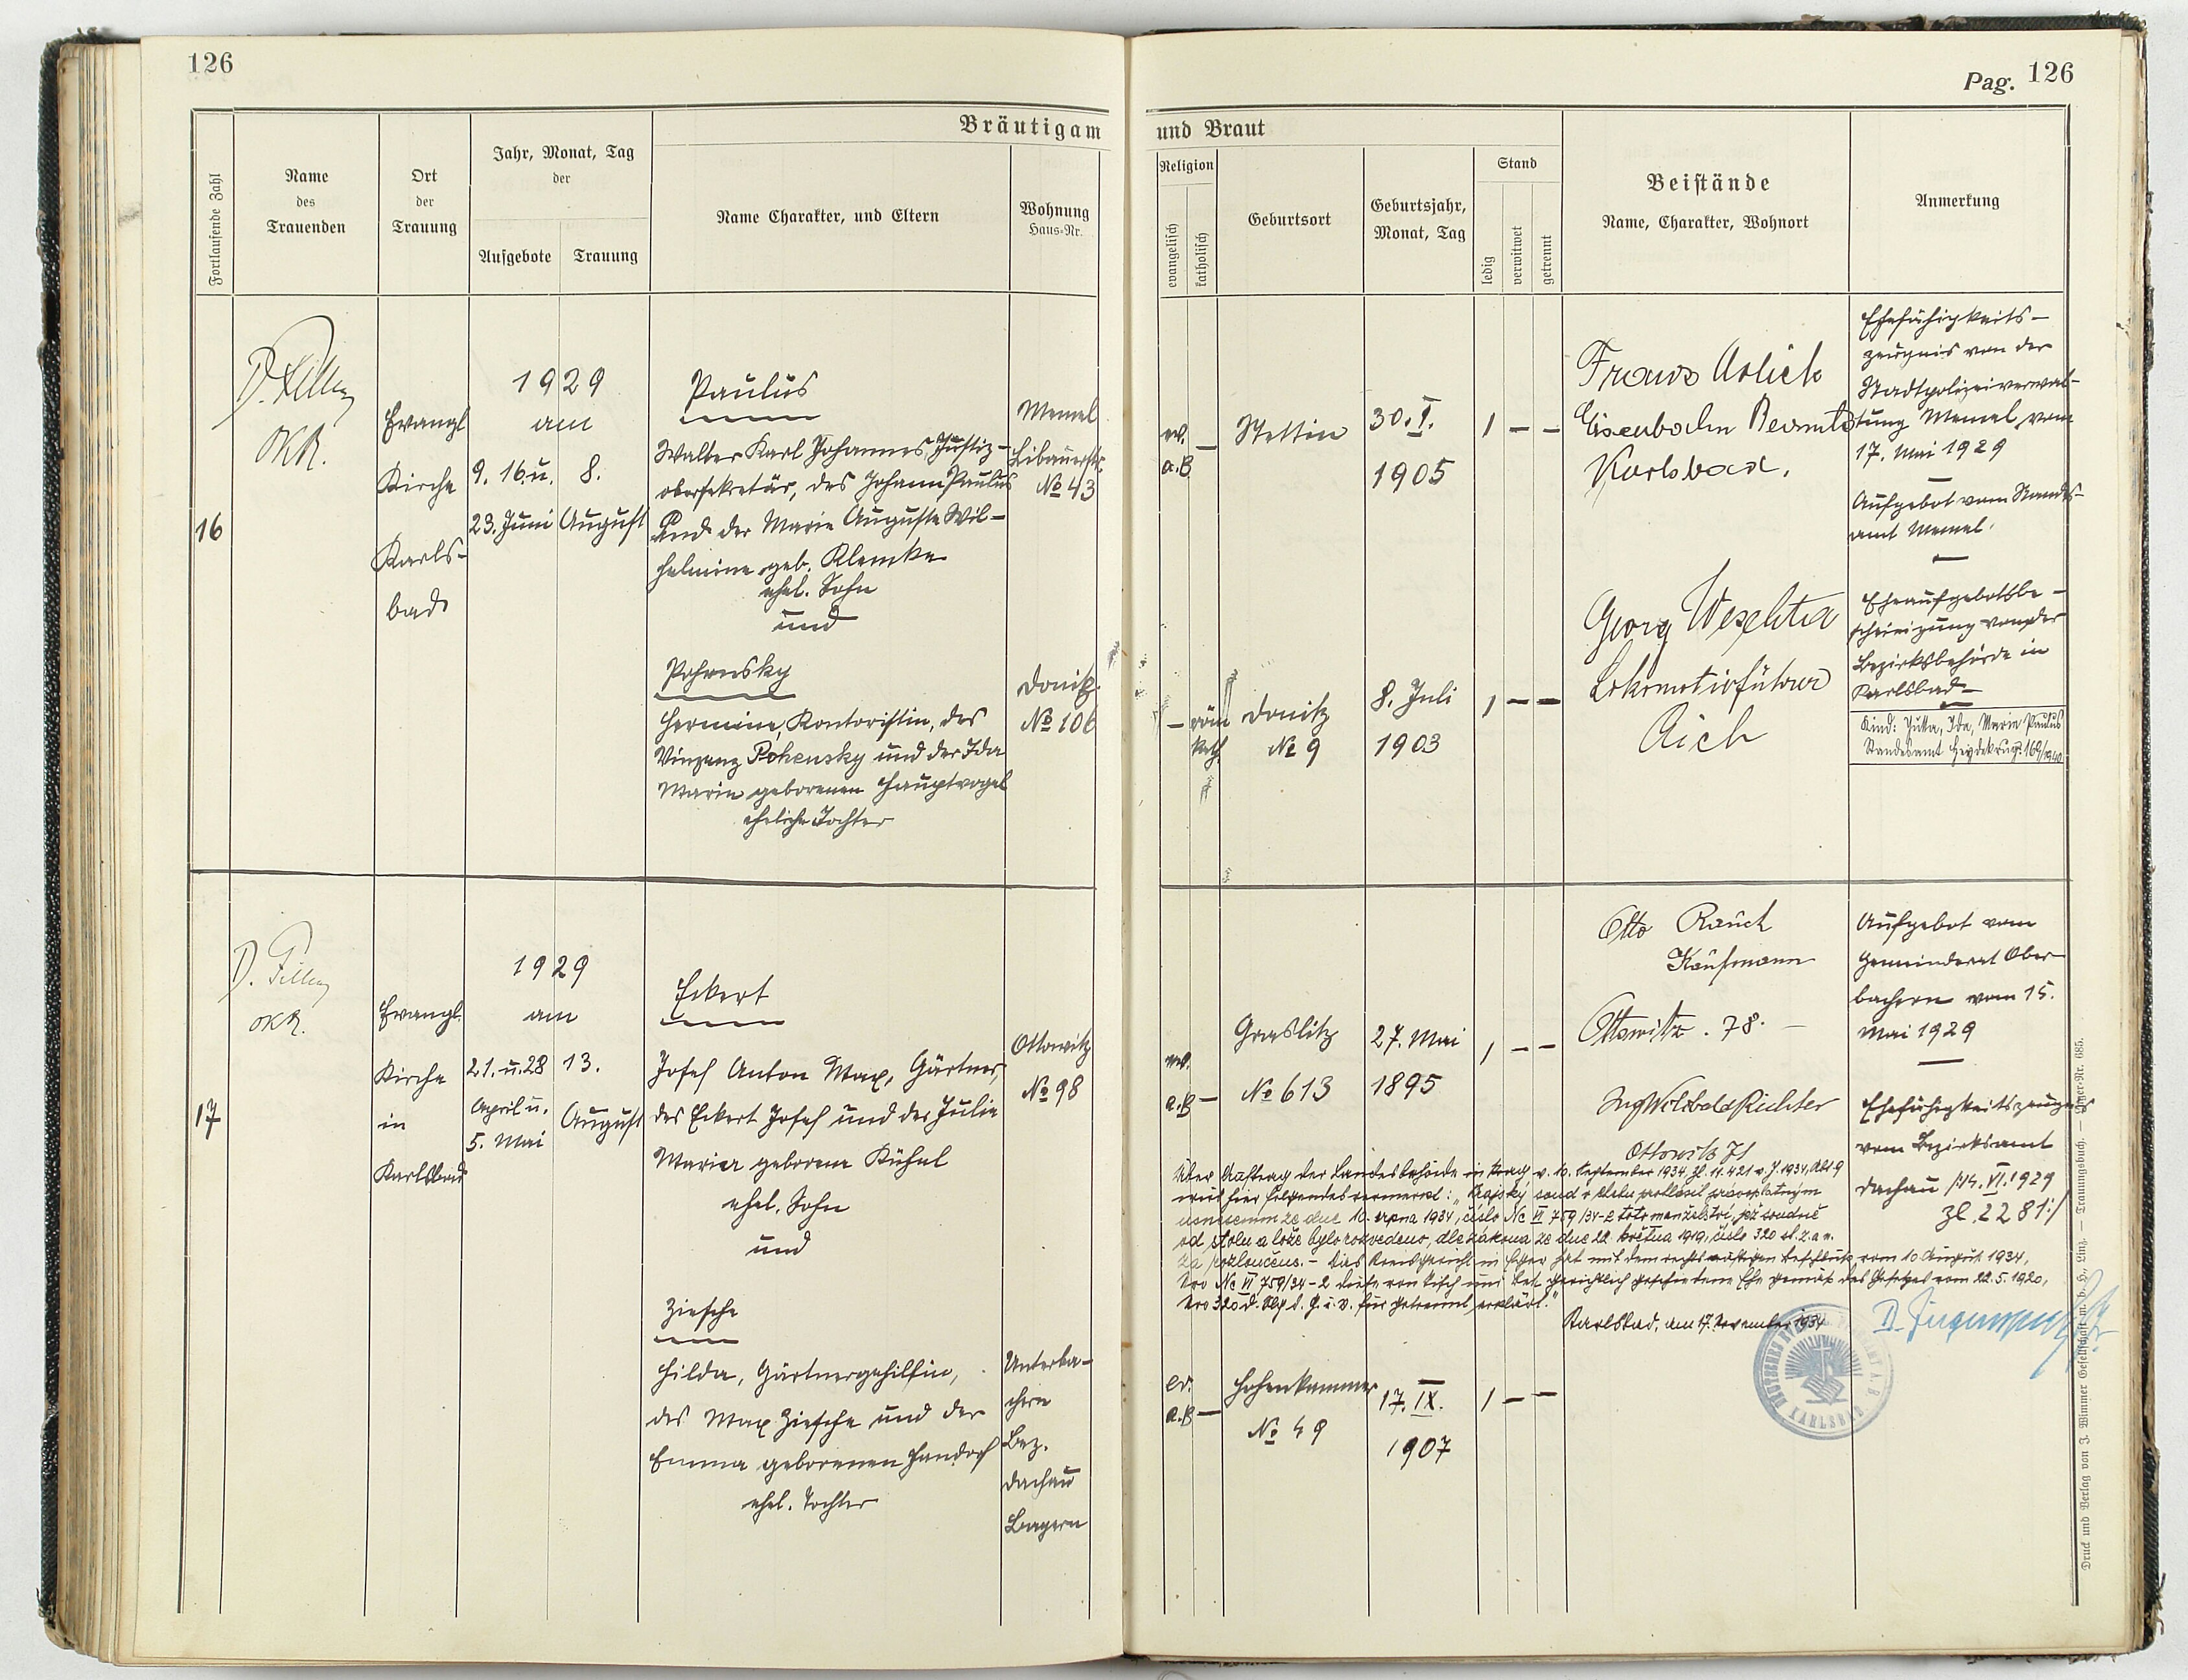 126
Bräutigam
Fortlaufende Zahl
Name
des
Trauenden
Ort
der
Trauung
Jahr, Monat, Tag
der
Aufgebote
Trauung
Name Charakter, und Eltern
Wohnung
Haus-Nr.
16
OKR.
Evangl
Kirche
Karls-
bad
1929
am
9. 16. u.
23. Juni
8.
August
Paulus
Walter Karl Johannes, Justiz-
obersekretär, des Johann Paulus
und der Marie Auguste Wil-
helmine geb. Klemke
ehel. Sohn
und
Memel
Libauerstr.
№ 43
Pohensky
Hermine, Kontoristin, des
Vinzenz Pohensky und der Ida
Marie geborenen Hauptvogel
eheliche Tochter
Donitz
№ 106
17
OKR.
Evangl.
Kirche
in
Karlsbad
1929
am
21. u. 28
April u.
5. Mai
13.
August
Eckert
Josef Anton Max, Gärtner,
des Eckert Josef und der Julie
Maria geborene Kühnl
ehel. Sohn
und
Ottowitz
№ 98
Ziesche
Hilda, Gärtnergehilfin,
des Max Ziesche und der
Emma geborenen Handorf
ehel. Tochter
Unterba-
chern
Bez.
Dachau
Bayern
Pag. 126
und Braut
Religion
evangelisch
katholisch
Geburtsort
Geburtsjahr,
Monat, Tag
Stand
ledig
verwitwet
getrennt
Beistände
Name, Charakter, Wohnort
Anmerkung
ev.
a.B
–
Stettin
30. I.
1905
1 – –
Eisenbahn
Karlsbad.
Ehefähigkeits-
zeugnis von der
Stadtpolizeiverwal-
tung Memel vom
17. Mai 1929
Aufgebot vom Standes-
amt Memel.
Eheaufgebotsbe-
scheinigung von der
Bezirksbehörde in
Karlsbad –
Kind: Jutta, Ida, Marie Paulus
Standesamt Heydekrug: 169/1940
– röm
kath.
Donitz
№ 9
8. Juli
1903
1 – –
Georg
Lokomotivführer
Aich
ev.
a.B –
Graslitz
№ 613
27. Mai
1895
1 – –
Otto Rauch
Kaufmann
Ottowitz. 78. –
Ing Willibald Richter
Ottowitz
Aufgebot vom
Gemeinderat Ober-
bachern vom 15.
Mai 1929
Ehefähigkeitszeugnis
vom Bezirksamt
Dachau /: 14. VI. 1929
Zl. 2281 :/
Über Auftrag der Landesbehörde in Prag v. 10. September 1934, Zl. 11.421 v. J. 1934, Abt. 9
wird hier folgendes vermerkt: „Krajský soud v Chebu prohlásil pravoplatným
usnesením ze dne 10. srpna 1934, číslo Nc VI 759/34-2 toto manželství, jež soudně
od stolu a lože bylo rozvedeno, dle zákona ze dne 22. května 1919, číslo 320 sb. z. a n.
za rozloučeno. – Das Kreisgericht in Eger hat mit dem rechtskräftigen Beschluß vom 10 August 1934,
Nro Nc VI 759/34-2 diese von Tisch und Bett gerichtlich geschiedene Ehe gemäß des Gesetzes vom 22.5.1920,
Nro 320 d. Slg d. G. u. V. für getrennt erklärt."
Karlsbad, am 17. November 1934
KARLSBAD
ev.
a.B –
Hohenkammer
№ 49
17. IX.
1907
1 – –
Druck und Verlag von J. Wimmer Gesellschaft m. b. H., Linz. — Trauungsbuch. — Lager-Nr. 685.